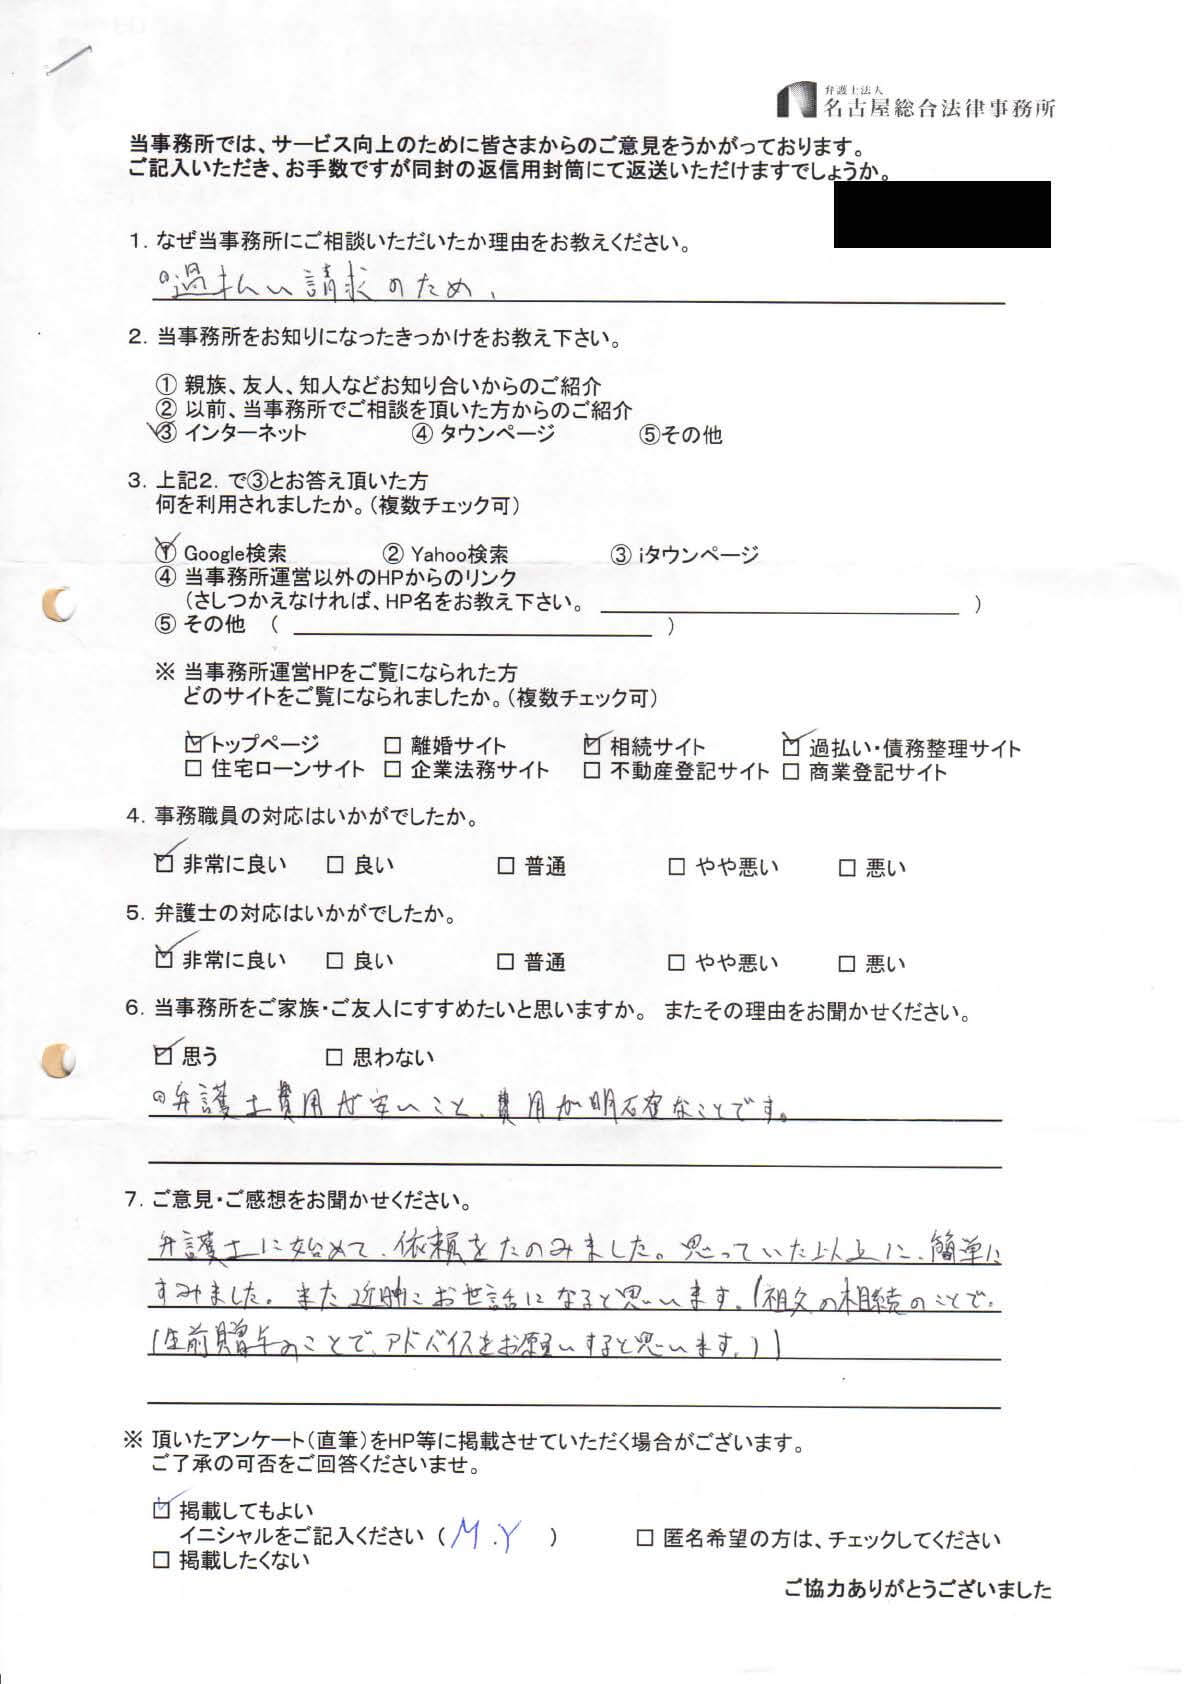 弁護士法人
名古屋総合法律事務所
当事務所では、サービス向上のために皆さまからのご意見をうかがっております。
ご記入いただき、お手数ですが同封の返信用封筒にて返送いただけますでしょうか。
1. なぜ当事務所にご相談いただいたか理由をお教えください。
過払い請求のため、
2. 当事務所をお知りになったきっかけをお教え下さい。
① 親族、友人、知人などお知り合いからのご紹介
② 以前、当事務所でご相談を頂いた方からのご紹介
③ インターネット ④ タウンページ ⑤その他
3. 上記2. で③とお答え頂いた方
何を利用されましたか。(複数チェック可)
① Google検索 ② Yahoo検索 ③ iタウンページ
④ 当事務所運営以外のHPからのリンク
(さしつかえなければ、HP名をお教え下さい。 )
⑤ その他 ( )
※ 当事務所運営HPをご覧になられた方
どのサイトをご覧になられましたか。(複数チェック可)
☑ トップページ □ 離婚サイト ☑ 相続サイト ☑ 過払い・債務整理サイト
□ 住宅ローンサイト □ 企業法務サイト □ 不動産登記サイト □ 商業登記サイト
4. 事務職員の対応はいかがでしたか。
☑ 非常に良い □ 良い □ 普通 □ やや悪い □ 悪い
5. 弁護士の対応はいかがでしたか。
☑ 非常に良い □ 良い □ 普通 □ やや悪い □ 悪い
6. 当事務所をご家族・ご友人にすすめたいと思いますか。 またその理由をお聞かせください。
☑ 思う □ 思わない
弁護士費用が安いこと、費用が明確なことです。
7. ご意見・ご感想をお聞かせください。
弁護士に始めて、依頼をたのみました。思っていた以上に、簡単に
すみました。また近時にお世話になると思います。(祖父の相続のことで、
(生前贈与のことで、アドバイスをお願いすると思います。))
※ 頂いたアンケート(直筆)をHP等に掲載させていただく場合がございます。
ご了承の可否をご回答くださいませ。
☑ 掲載してもよい
イニシャルをご記入ください ( M.Y ) □ 匿名希望の方は、チェックしてください
□ 掲載したくない
ご協力ありがとうございました